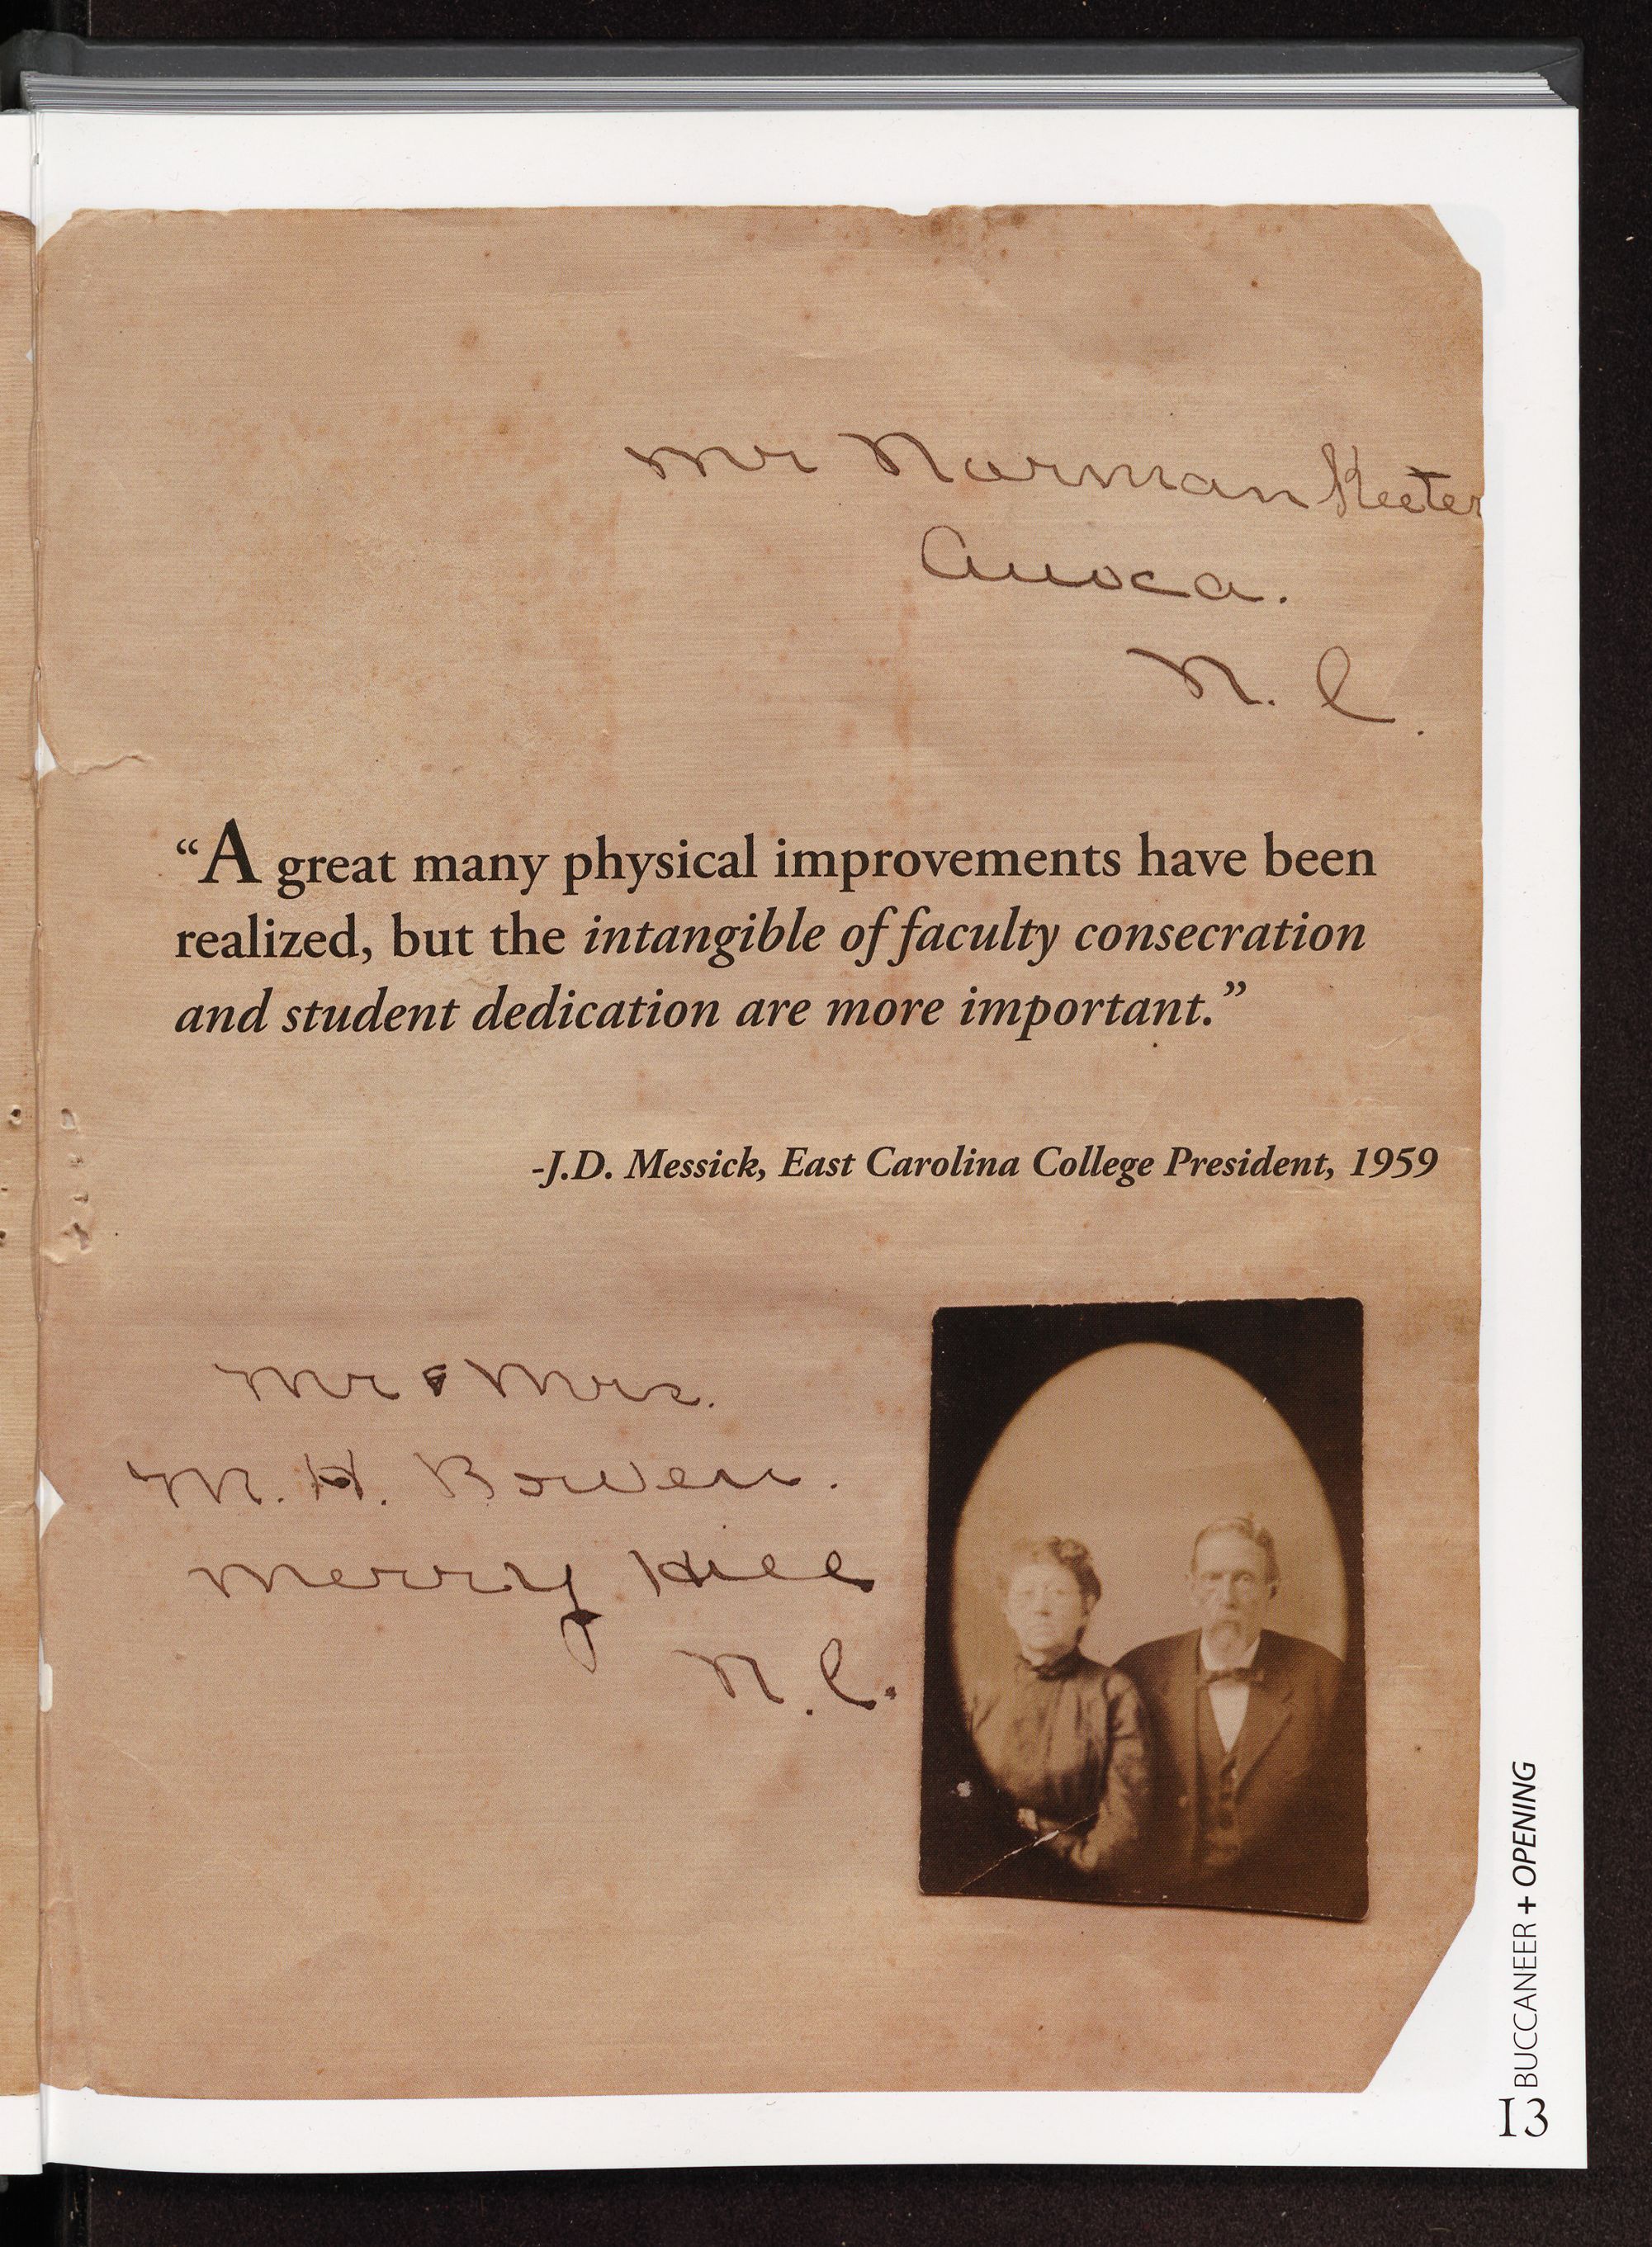 Mr Norman Keeter
Avoca.
N. C.
“A great many physical improvements have been
realized, but the intangible of faculty consecration
and student dedication are more important.”
-J.D. Messick, East Carolina College President, 1959
Mr & Mrs.
M. H. Bowen.
Merry Hill
N.C.
BUCCANEER + OPENING
13